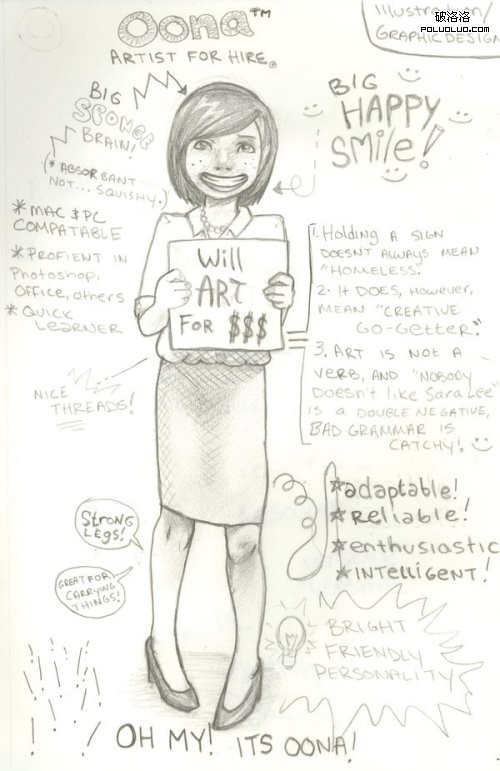 Oona™
ARTIST FOR HIRE.
Illustration/
GRAPHIC DESIGN
破洛洛
POLUOLUO.COM
BIG
SPONGE
BRAIN!
(*ABSORBANT
NOT... SQUISHY.)
BIG
HAPPY
SMILE!
* MAC & PC
COMPATABLE
* PROFIENT IN
Photoshop,
Office, others
* QUICK
LEARNER
Will
ART
FOR $$$
1. Holding A SIGN
DOESN'T ALWAYS MEAN
"HOMELESS."
2. IT DOES, HOWEVER,
MEAN "CREATIVE
GO-GETTER."
3. ART IS NOT A
VERB, AND "NOBODY
DOESN'T LIKE SARA LEE"
IS A DOUBLE NEGATIVE,
BAD GRAMMAR IS
CATCHY!
NICE
THREADS!
STRONG
LEGS!
GREAT FOR
CARRYING
THINGS!
*adaptable!
*Reliable!
*enthusiastic
*INTElligENT!
BRIGHT
FRIENDLY
PERSONALITY
OH MY! ITS OONA!